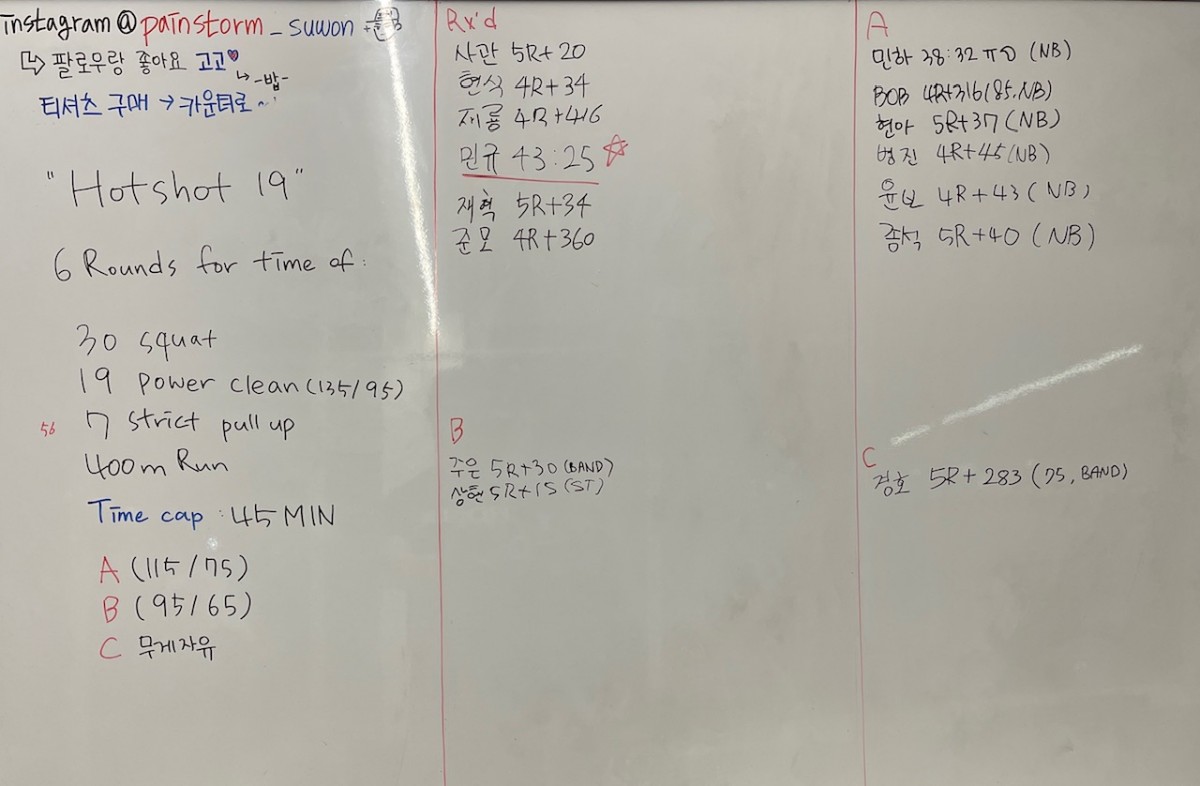 instagram@painstorm_suwon
팔로우랑 좋아요 고고
-밥-
티셔츠 구매 → 카운터로~
"Hotshot 19"
6 Rounds for time of:
30 squat
19 power clean (135/95)
56 7 strict pull up
400m Run
Time cap : 45 MIN
A (115/75)
B (95/65)
C 무게자유
Rx'd
사관 5R+20
현식 4R+34
제롱 4R+416
민규 43:25
재혁 5R+34
준모 4R+360
B
주은 5R+30 (BAND)
상현 5R+15 (ST)
A
민하 38:32 ㅠㅇ (NB)
BOB 4R+316 (85, NB)
현아 5R+37 (NB)
병진 4R+45 (NB)
윤보 4R+43 (NB)
종석 5R+40 (NB)
C
경호 5R+283 (75, BAND)